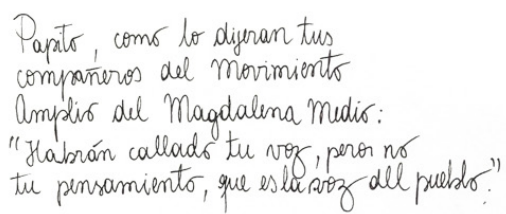 Papito, como lo dijeran tus
compañeros del Movimiento
Amplio del Magdalena Medio:
"Habrán callado tu voz, pero no
tu pensamiento, que es la voz del pueblo."